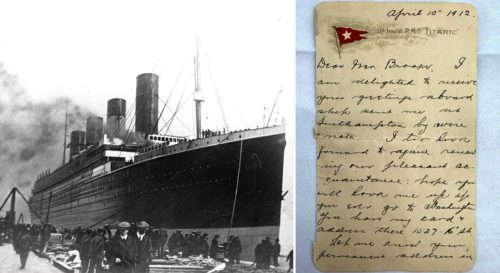 April 10th 1912.
On board R.M.S. "TITANIC"
Dear Mrs I
am delighted to receive
your greetings aboard
ship sent me at
Southampton by wire
note. I too look
forward to again renew
ing our pleasant ac
quaintance: hope you
will look me up if
you ever go to Washington
You have my card &
address there 1527-16th St.
Let me know your
permanent address in